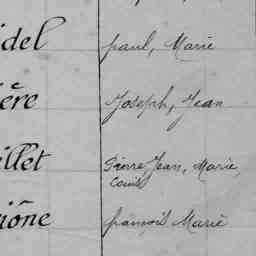 idel paul, Marie
ère Joseph, Jean
illet Pierre Jean, Marie,
Louis
iône françois Marie